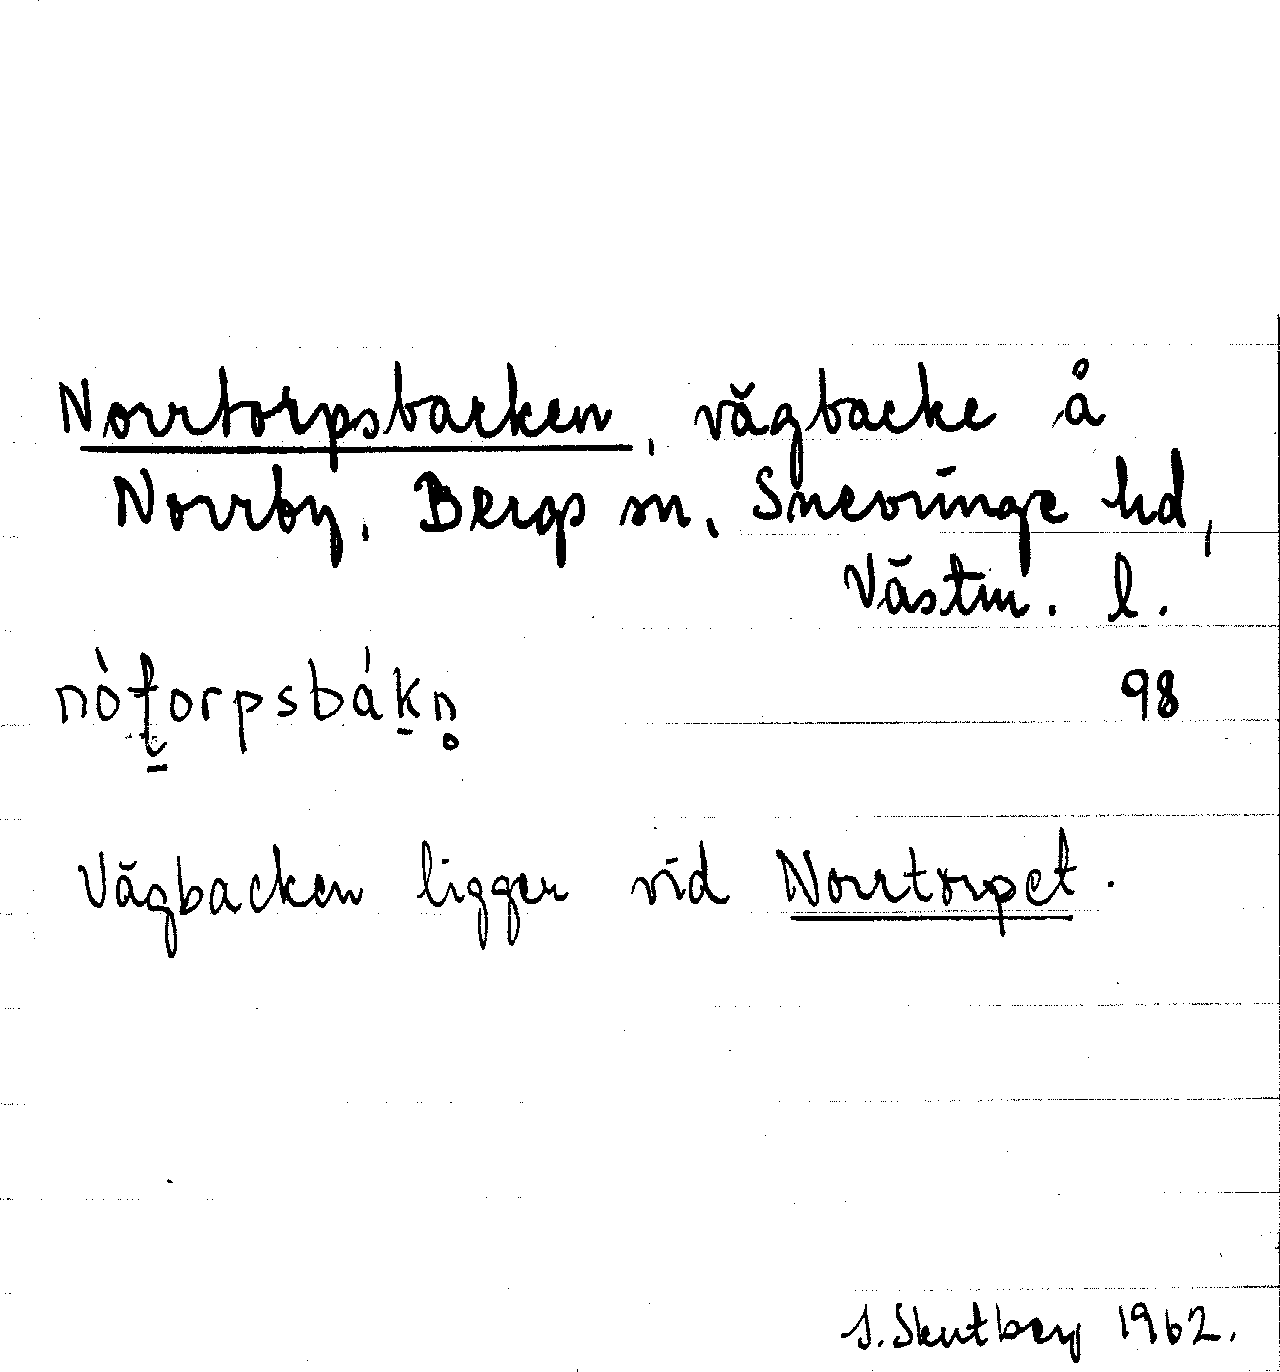 Norrtorpsbacken, vägbacke å
Norrby, Bergs sn, Snevringe hd,
Västm. l.
nòṭorpsbákn̥ 98
Vägbacken ligger vid Norrtorpet.
S. Skutberg 1962.